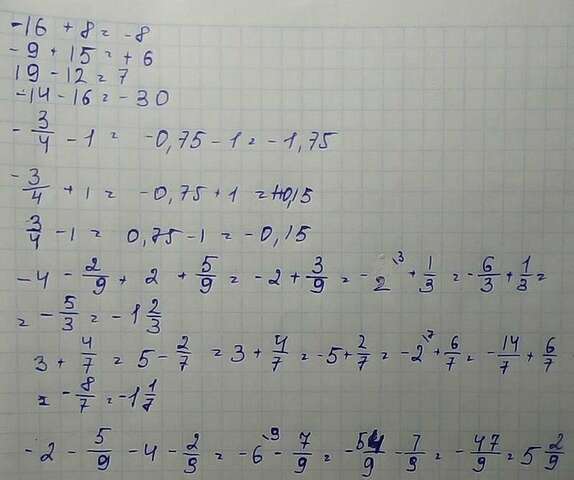 -16 + 8 = -8
-9 + 15 = +6
19 - 12 = 7
-14 - 16 = -30
- 3/4 - 1 = -0,75 - 1 = -1,75
- 3/4 + 1 = -0,75 + 1 = +0,15
3/4 - 1 = 0,75 - 1 = -0,15
-4 - 2/9 + 2 + 5/9 = -2 + 3/9 = -2\3 + 1/3 = - 6/3 + 1/3 =
= - 5/3 = -1 2/3
3 + 4/7 = 5 - 2/7 = 3 + 4/7 = -5 + 2/7 = -2\7 + 6/7 = - 14/7 + 6/7
= - 8/7 = -1 1/7
-2 - 5/9 - 4 - 2/9 = -6\9 - 7/9 = - 54/9 - 7/9 = - 47/9 = 5 2/9